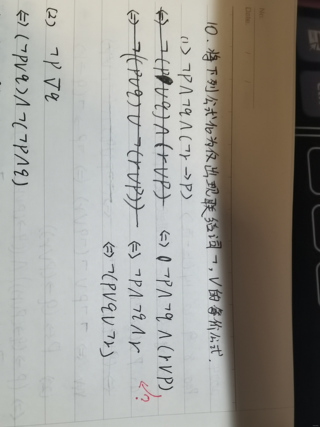 10. 将下列公式化为仅出现联结词 ¬, ∨ 的等价公式.
(1) ¬p∧¬q∧(¬r→p)
⇔ ¬(p∨q)∧(r∨p) ⇔ ¬p∧¬q∧(r∨p)
⇔ ¬((p∨q)∨¬(r∨p)) ⇔ ¬p∧¬q∧r
⇔ ¬(p∨q∨¬r)
(2) ¬p ∇ q
⇔ (¬p∨q)∧¬(¬p∧q)